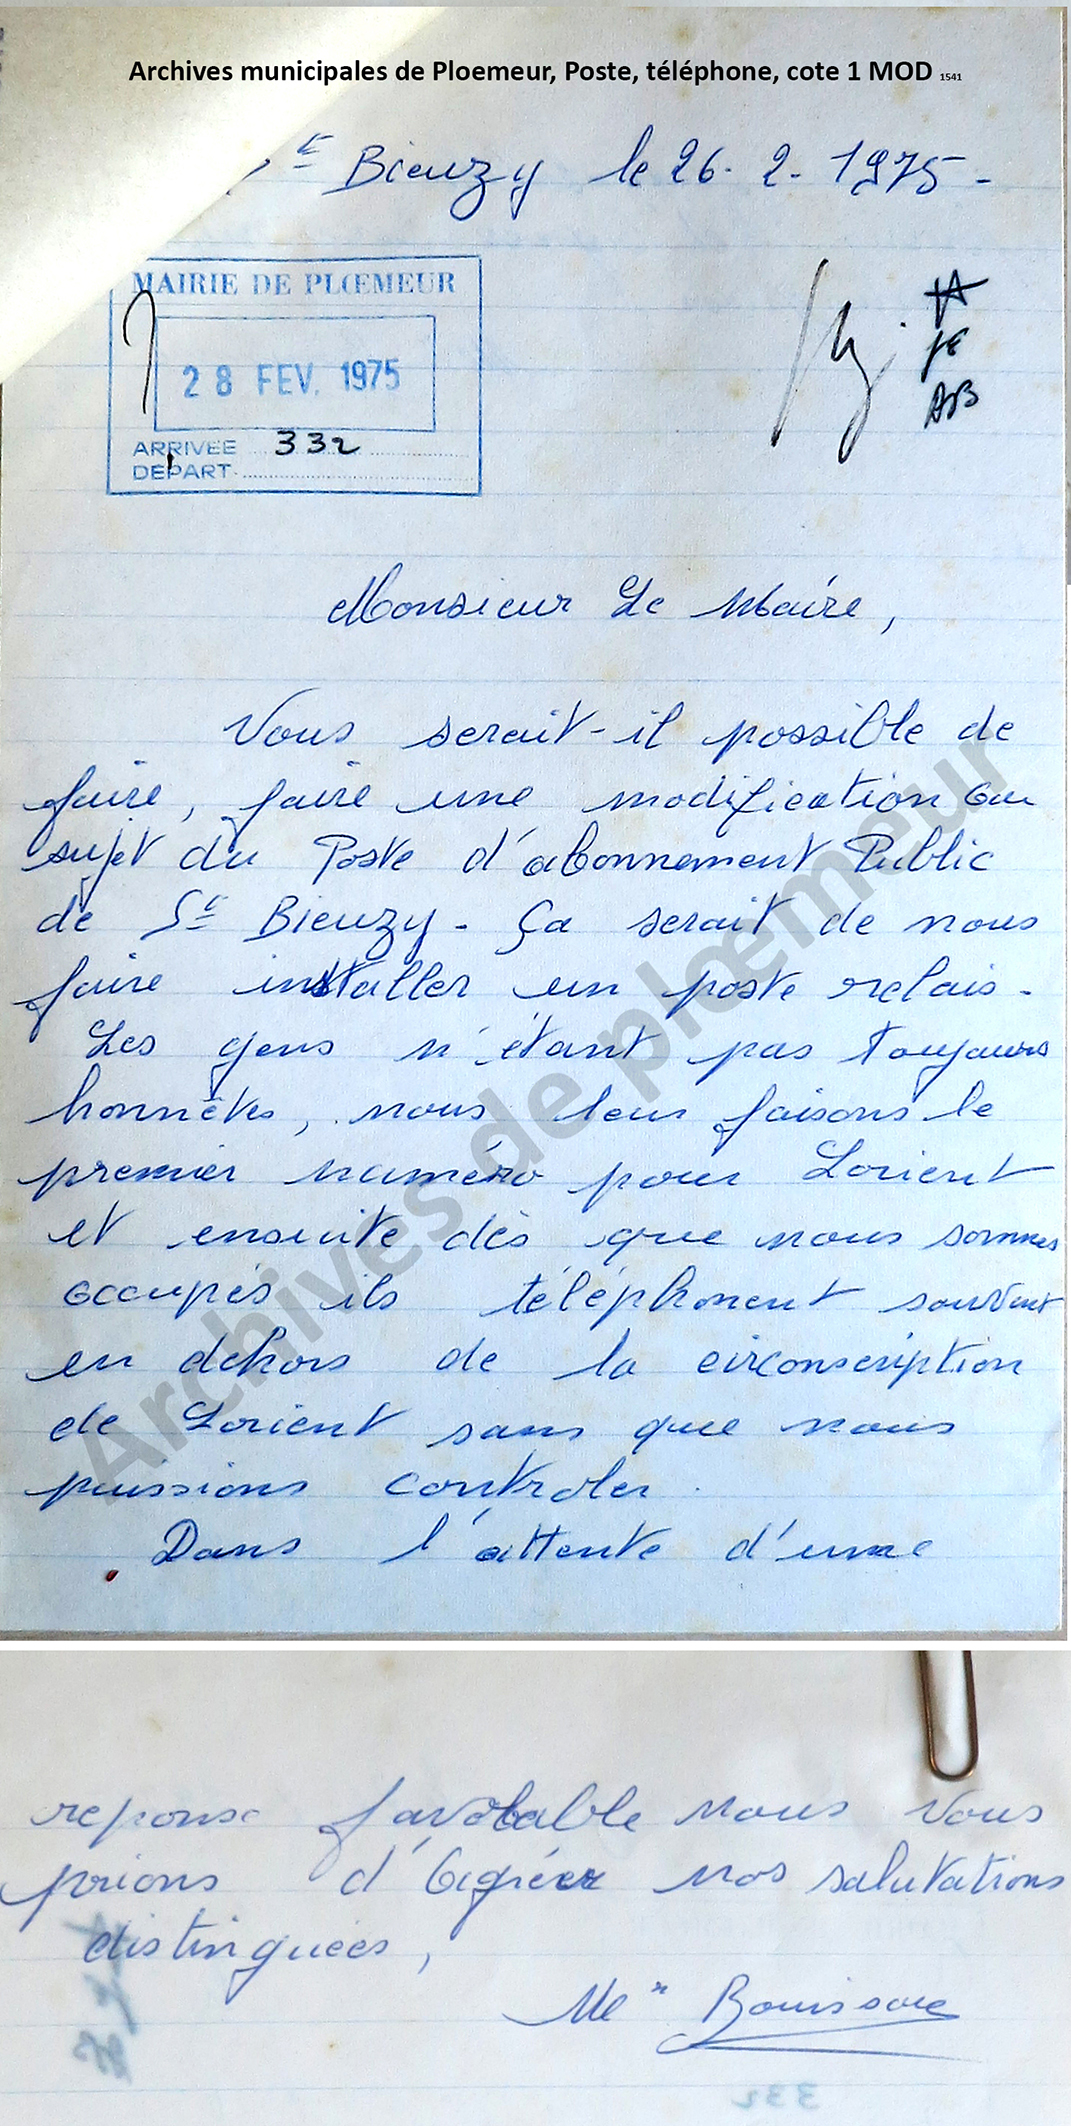 Archives municipales de Ploemeur, Poste, téléphone, cote 1 MOD 1541
St Bieuzy le 26. 2. 1975 -
MAIRIE DE PLŒMEUR
28 FEV. 1975
ARRIVÉE 332
DÉPART
JE
AB
Monsieur Le Maire,
Vous serait-il possible de
faire, faire une modification au
sujet du Poste d'abonnement Public
de St Bieuzy - Ça serait de nous
faire installer un poste relais -
Les gens n'étant pas toujours
honnêtes, nous leur faisons le
premier numéro pour Lorient
et ensuite dès que nous sommes
occupés ils téléphonent souvent
en dehors de la circonscription
de Lorient sans que nous
puissions controler.
Dans l'attente d'une
reponse favorable nous vous
prions d'agréer nos salutations
distinguées,
Archives de ploemeur
332